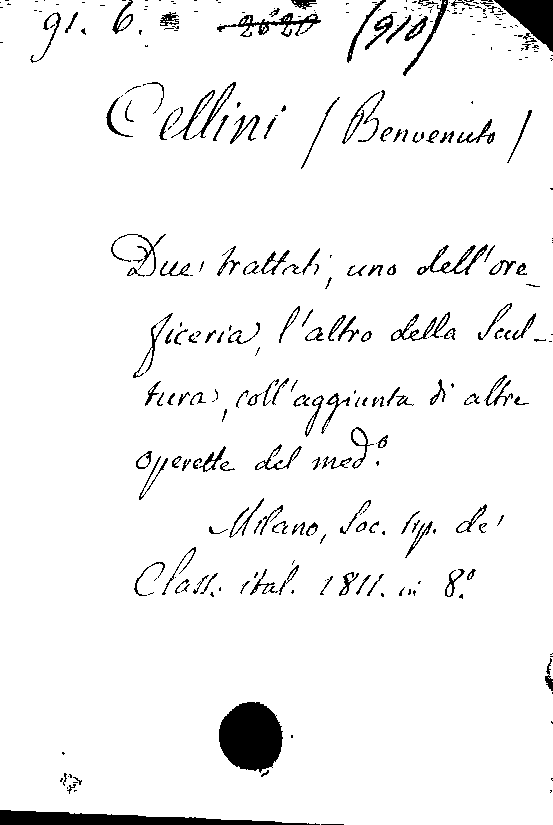 91. 6. 2620 (910)
Cellini (Benvenuto)
Due trattati, uno dell'ore_
ficeria, l'altro della Scul_
tura, coll'aggiunta di altre
operette del med.º
Milano, Soc. tip. de'
Class. ital. 1811. in 8.º